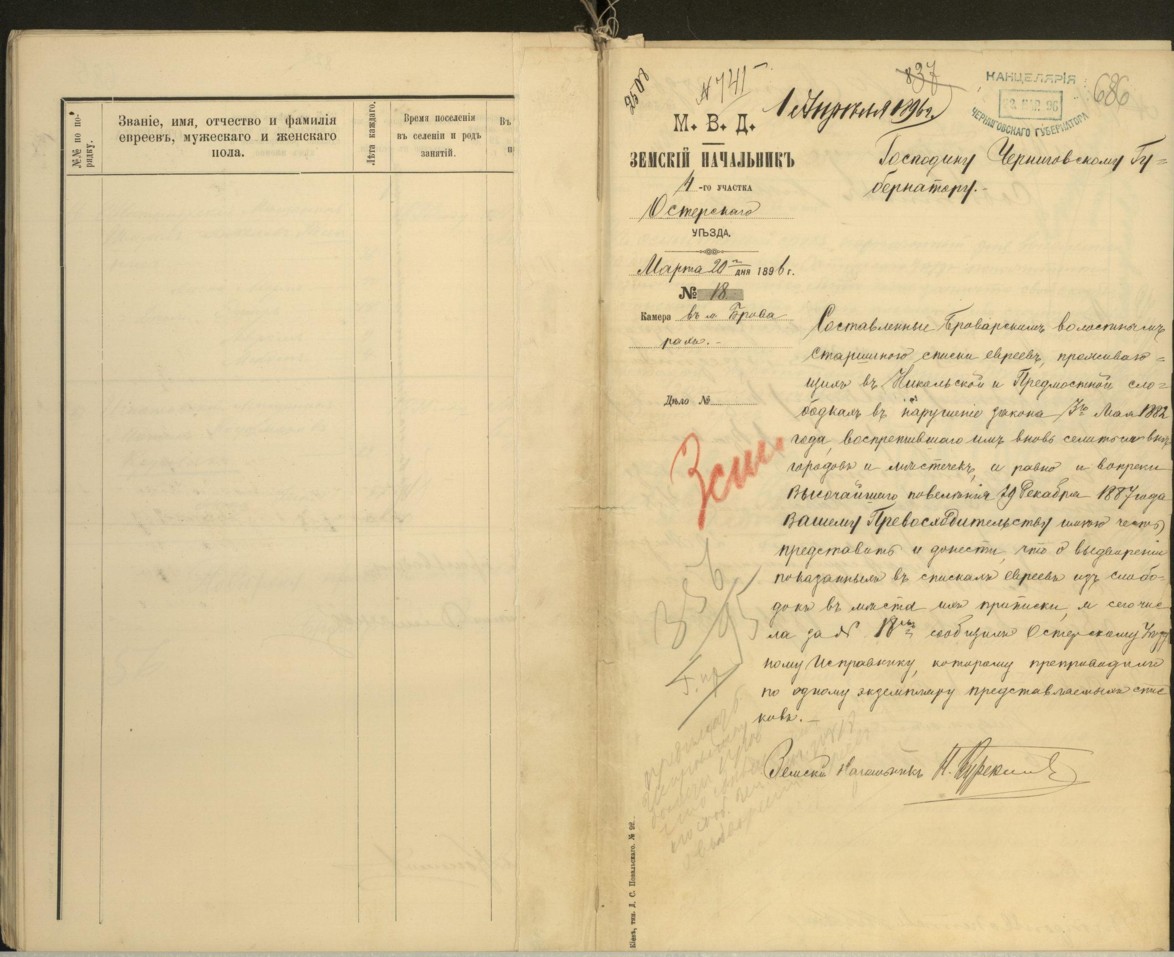 №№ по по-
рядку.
Званіе, имя, отчество и фамилія
евреевъ, мужескаго и женскаго
пола.
Лѣта каждаго.
Время поселенія
въ селеніи и родъ
занятій.
Въ
п
2508
N 741
837
1 Апрѣля 1896 г.
КАНЦЕЛЯРІЯ
2 МАР. 96
ЧЕРНИГОВСКАГО ГУБЕРНАТОРА
686
М. В. Д.
ЗЕМСКІЙ НАЧАЛЬНИКЪ
4-го УЧАСТКА
Остерскаго
УѢЗДА.
Марта 20 дня 1896 г.
№ 18
Камера въ м. Брова
рахъ. -
Дѣло №
Господину Черниговскому Гу-
бернатору. -
Составленные Броварскимъ волостнымъ
старшиною списки евреевъ, проживаю-
щихъ въ Никольской и Предмостной сло-
бодкахъ въ нарушеніе закона 3го Мая 1882
года, воспретившаго имъ вновь селиться внѣ
городовъ и мѣстечекъ, а равно и вопреки
Высочайшаго повелѣнія 29 Декабря 1887 года
Вашему Превосходительству имѣю честь
представить и донести, что о выдвореніи
показанныхъ въ спискахъ евреевъ изъ слобо-
докъ въ мѣста ихъ приписки, я сего чис-
ла за N 18 сообщилъ Остерскому Уѣзд
ному Исправнику, которому препроводилъ
по одному экземпляру представляемыхъ спис
ковъ. -
Земскій Начальникъ Н.
356/95
Кіевъ, тип. Л. С. Повальскаго. № 26.